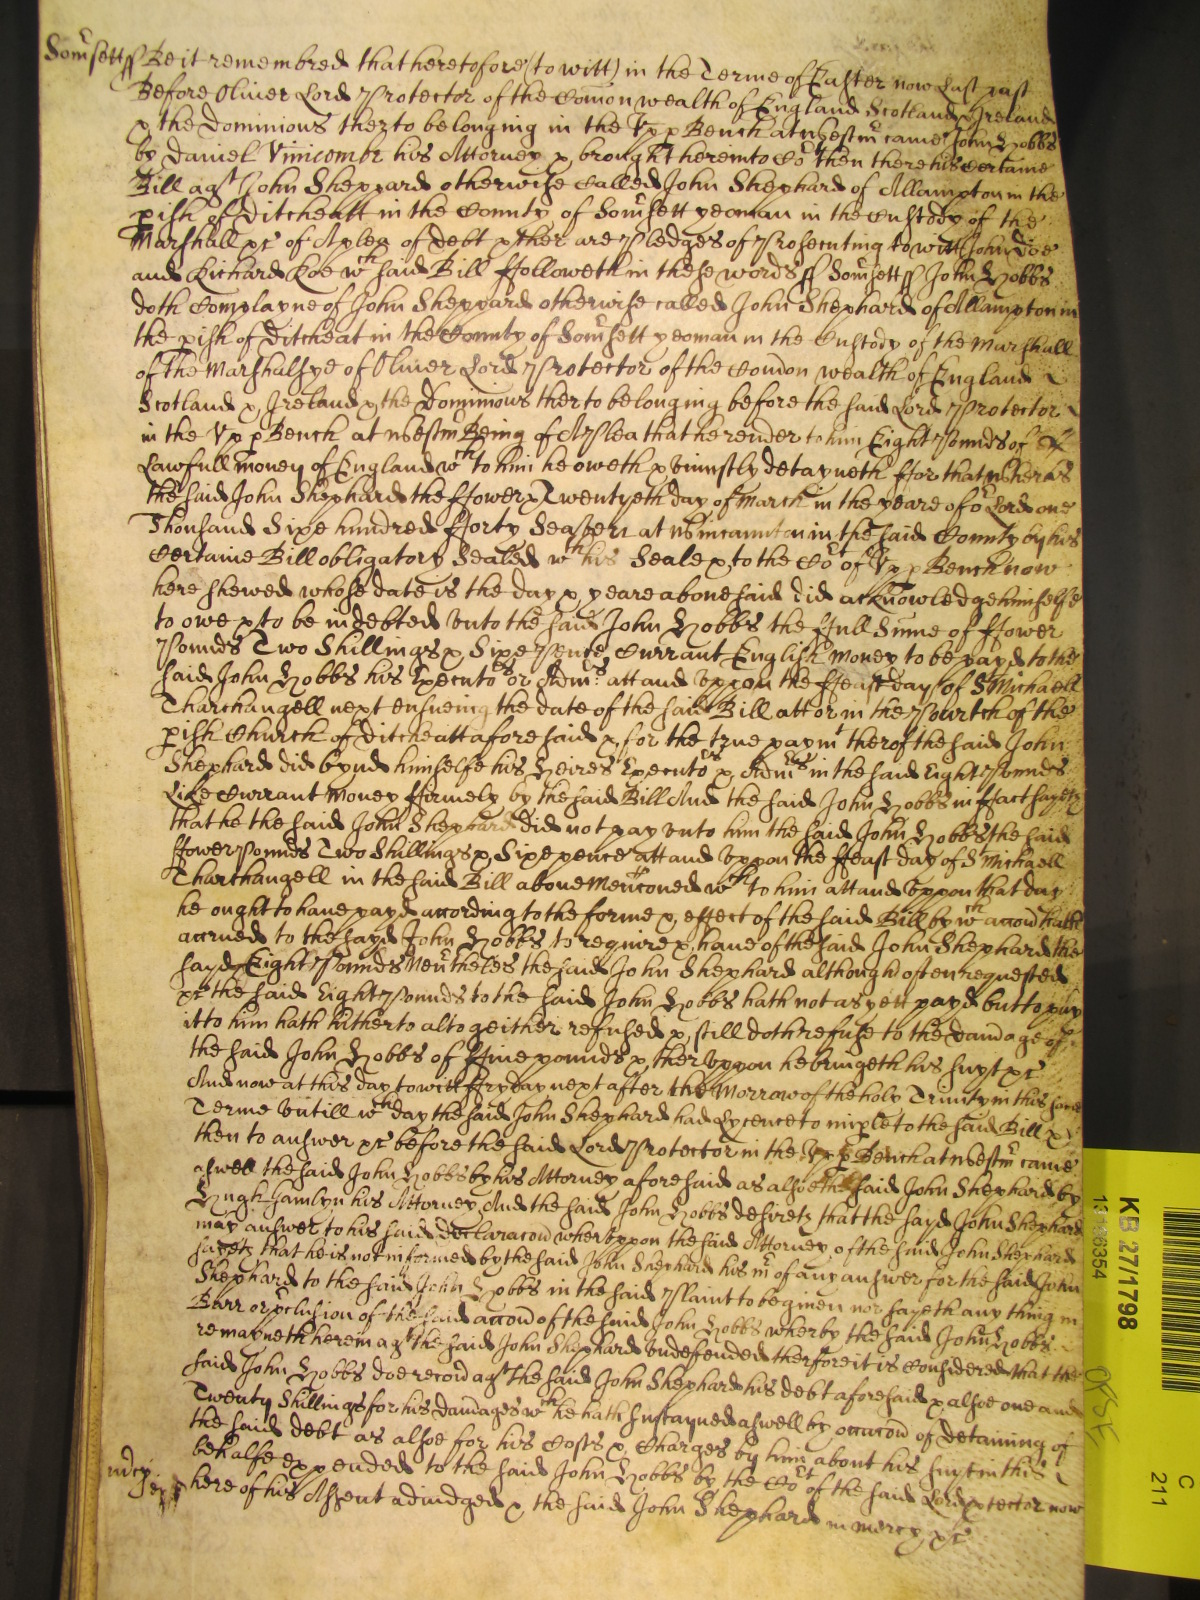 Somsett ss Be it remembred that heretofore (to witt) in the Terme of Easter now last past
Before Oliver Lord Protector of the Comon wealth of England Scotland & Ireland
& the Dominions therto belonging in the Upp Bench at Westm came John Hobbs
by Daniel Vinicombe his Attorney & brought here into Cot then there his certaine
Bill agt John Sheppard otherwise called John Shephard of Allampton in the
pish of Ditcheatt in the County of Somsett yeoman in the Custody of the
Marshall &c of A plea of debt & ther are Pledges of Prosecuting to witt John Doe
and Richard Roe wch said Bill ffolloweth in these words ss Somsett ss John Hobbs
doth Complayne of John Sheppard otherwise called John Shephard of Allampton in
the pish of Ditcheat in the County of Somsett yeoman in the Custody of the Marshall
of the Marshalsye of Oliver Lord Protector of the Comon wealth of England
Scotland & Ireland & the Dominions therto belonging before the said Lord Protector
in the Upp Bench at Westm Being of A Plea that he render to him Eight Pounds of
Lawfull money of England wch to him he oweth & uniustly detayneth ffor that wheras
the said John Shephard the ffower & Twentyeth day of March in the yeare of or Lord one
Thousand Sixe hundred fforty Seaven at Wincanton in the said County by his
Certaine Bill obligatory Sealed wth his Seale & to the Cot of Upp Bench now
here shewed whose date is the day & yeare abovesaid did acknowledge himselfe
to owe & to be indebted unto the said John Hobbs the ffull Sume of ffower
Pounds Two Shillings & Sixe Pence Currant English money to be payd to the
said John Hobbs his Executors or Admrs att and uppon the ffeast day of St Michaell
Tharchangell next ensueing the date of the said Bill att or in the Pourtch of the
pish Church of Ditcheatt aforesaid & for the true paymt therof the said John
Shephard did bynd himselfe his Heires Executors & Admrs in the said Eight Pounds
Like Currant Money ffirmely by the said Bill And the said John Hobbs in ffact sayeth
that he the said John Shephard did not pay unto him the said John Hobbs the said
ffower Pounds Two Shillings & Sixe pence att and uppon the ffeast day of St Michaell
Tharchangell in the said Bill above Menconed wch to him att and uppon that day
he ought to have payd according to the forme & effect of the said Bill by wch accon hath
accrued to the sayd John Hobbs to require & have of the said John Shephard the
sayd Eight Pounds Neutheles the said John Shephard although often requested
&c the said Eight Pounds to the said John Hobbs hath not as yett payd but to pay
it to him hath hitherto altogeither refused & still doth refuse to the damage of
the said John Hobbs of ffive pounds & ther uppon he bringeth his suyt &c
And now at this day to witt ffryday next after the Morrow of the holy Trinity in this same
Terme untill wch day the said John Shephard had Lycence to imple to the said Bill &
then to answer &c before the said Lord Protector in the Upp Bench at Westm came
aswell the said John Hobbs by his Attorney aforesaid as alsoe the said John Shephard by
Hugh Jamlyn his Attorney And the said John Hobbs desireth that the sayd John Shephard
may answer to his said declaracon wheruppon the said Attorney of the said John Shephard
sayeth that he is not informed by the said John Shephard his mr of any answer for the said John
Shephard to the said John Hobbs in the said Plaint to be given nor sayeth any thing in
Barr or pclusion of the said accon of the said John Hobbs wherby the said John Hobbs
remayneth herein agt the said John Shephard undefended therfore it is considered that the
said John Hobbs doe recov agt the said John Shephard his debt aforesaid & alsoe one and
Twenty Shillings for his damages wch he hath sustayned aswell by occacon of detaining of
the said debt as alsoe for his Costs & Charges by him about his suyt in this
behalfe expended to the said John Hobbs by the Cot of the said Lord Ptector now
here of his Assent adiudged & the said John Shephard in mercy &c
mcy
KB 27/1798
13186354
C
211